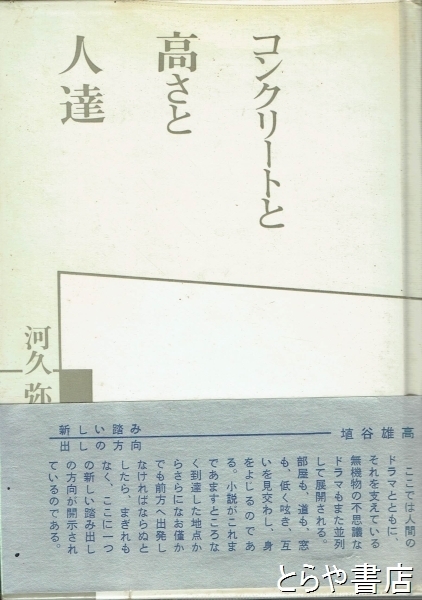 コンクリートと
高さと
人達
河久弥
埴谷雄高
新しい踏み
出しの方向
ここでは人間の
ドラマとともに、
それを支えている
無機物の不思議な
ドラマもまた並列
して展開される。
部屋も、道も、窓
も、低く呟き、互
いを見交わし、身
をよじるのであ
る。小説がこれま
であますところな
く到達した地点か
らさらになお僅か
でも前方へ出発し
なければならぬと
したら、まぎれも
なく、ここに一つ
の新しい踏み出し
の方向が開示され
ているのである。
とらや書店